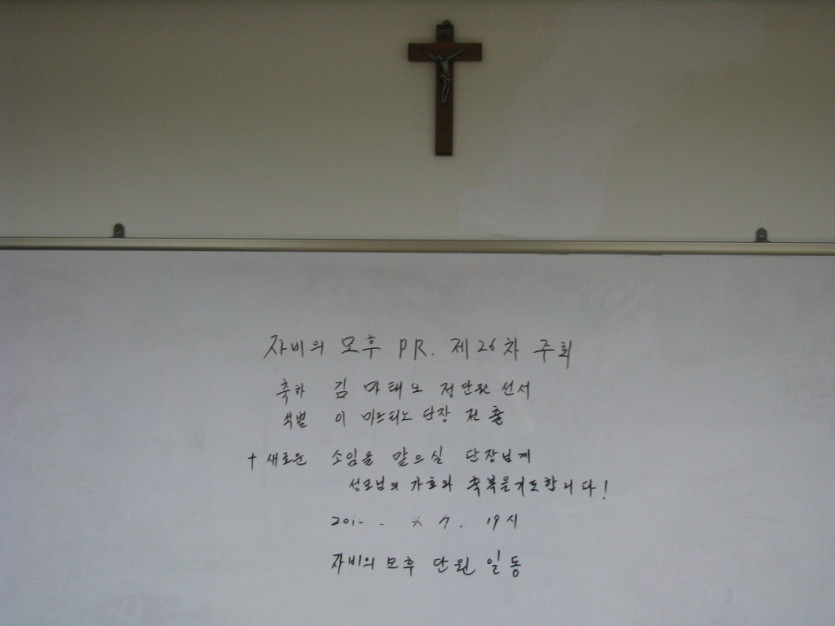 자비의 모후 PR. 제26차 주회
축하 김 마태오 정단원 선서
석별 이 마르티노 단장 전출
+ 새로운 소임을 맡으실 단장님께
성모님의 가호와 축복을기도합니다!
7. 19시
자비의 모후 단원 일동